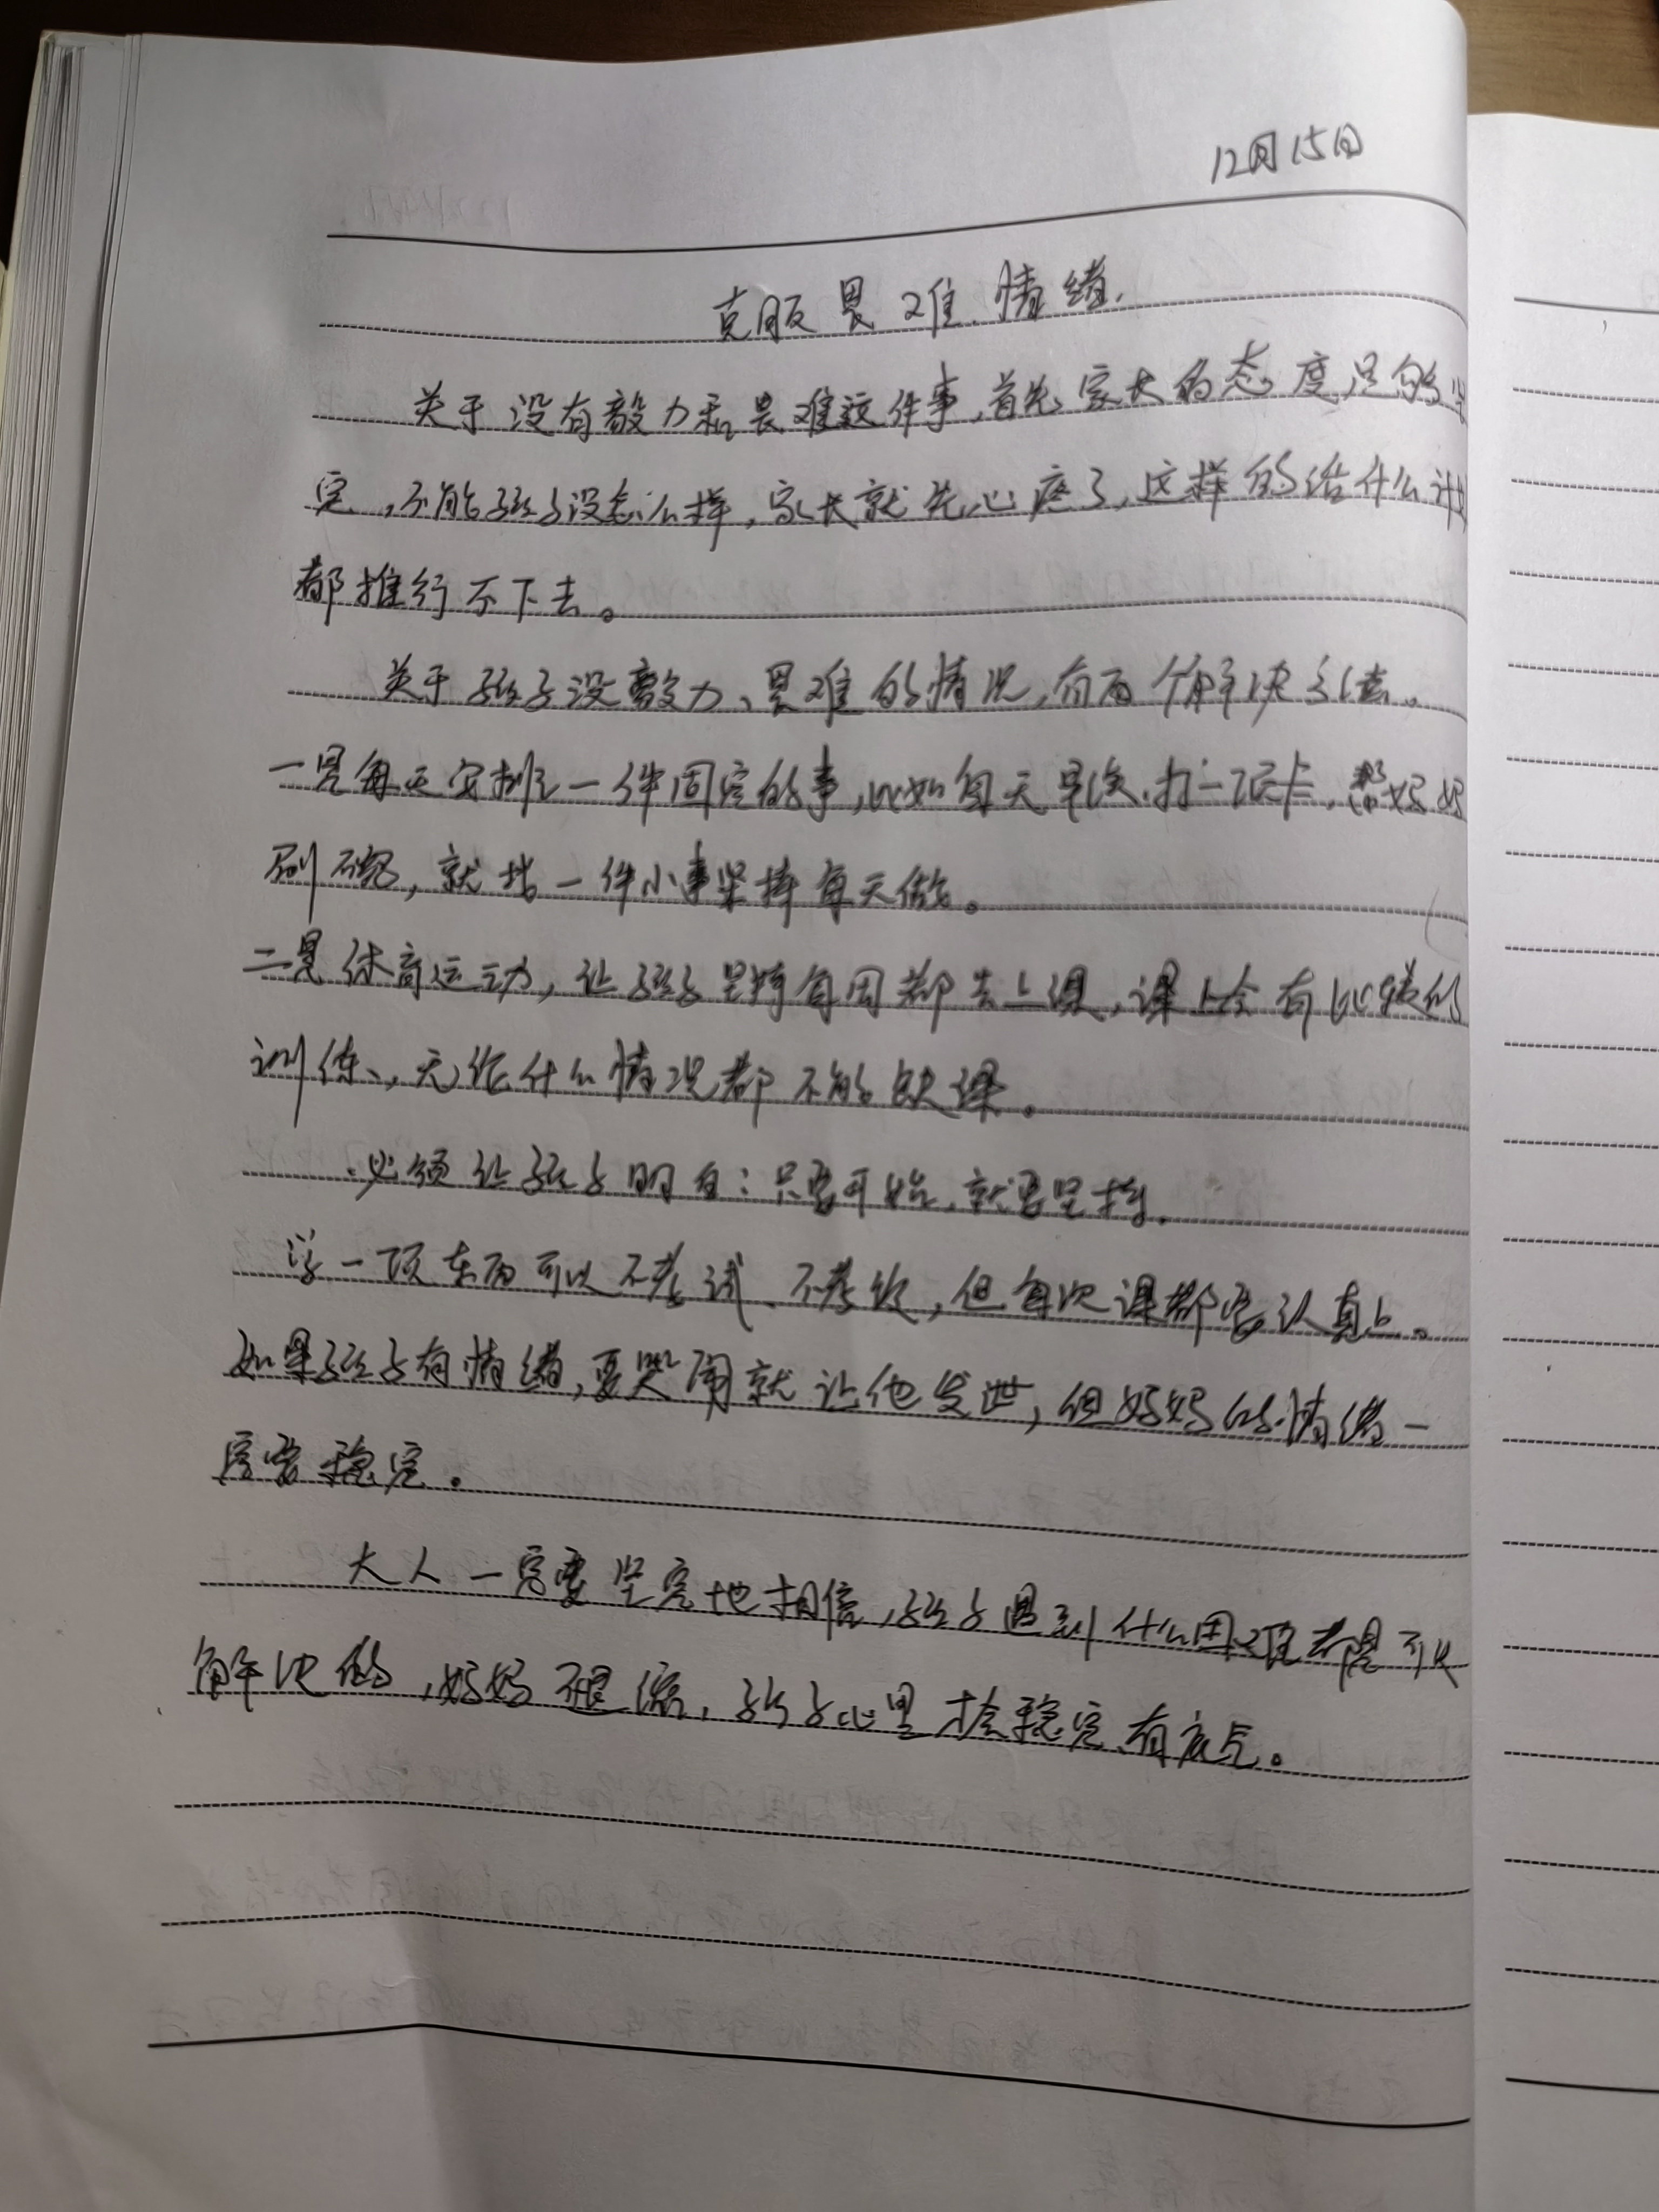 12月15日
克服畏难情绪.
关于没有毅力和畏难这件事,首先家长的态度足够坚
定,不能孩子没怎么样,家长就先心疼了,这样的话什么计划
都推行不下去。
关于孩子没毅力、畏难的情况,有两个解决方法。
一是每天安排一件固定的事,比如每天早晚打一次卡,帮妈妈
刷碗,就找一件小事坚持每天做。
二是体育运动,让孩子坚持每周都去上课,课上会有比赛的
训练、,无论什么情况都不能缺课。
必须让孩子明白:只要开始,就要坚持.
学一项东西可以不考试、不考级,但每次课都要认真上。
如果孩子有情绪,要哭闹就让他发泄,但妈妈的情绪一
定要稳定。
大人一定要坚定地相信,孩子遇到什么困难都是可以
解决的,妈妈不退缩,孩子心里才会稳定、有底气。